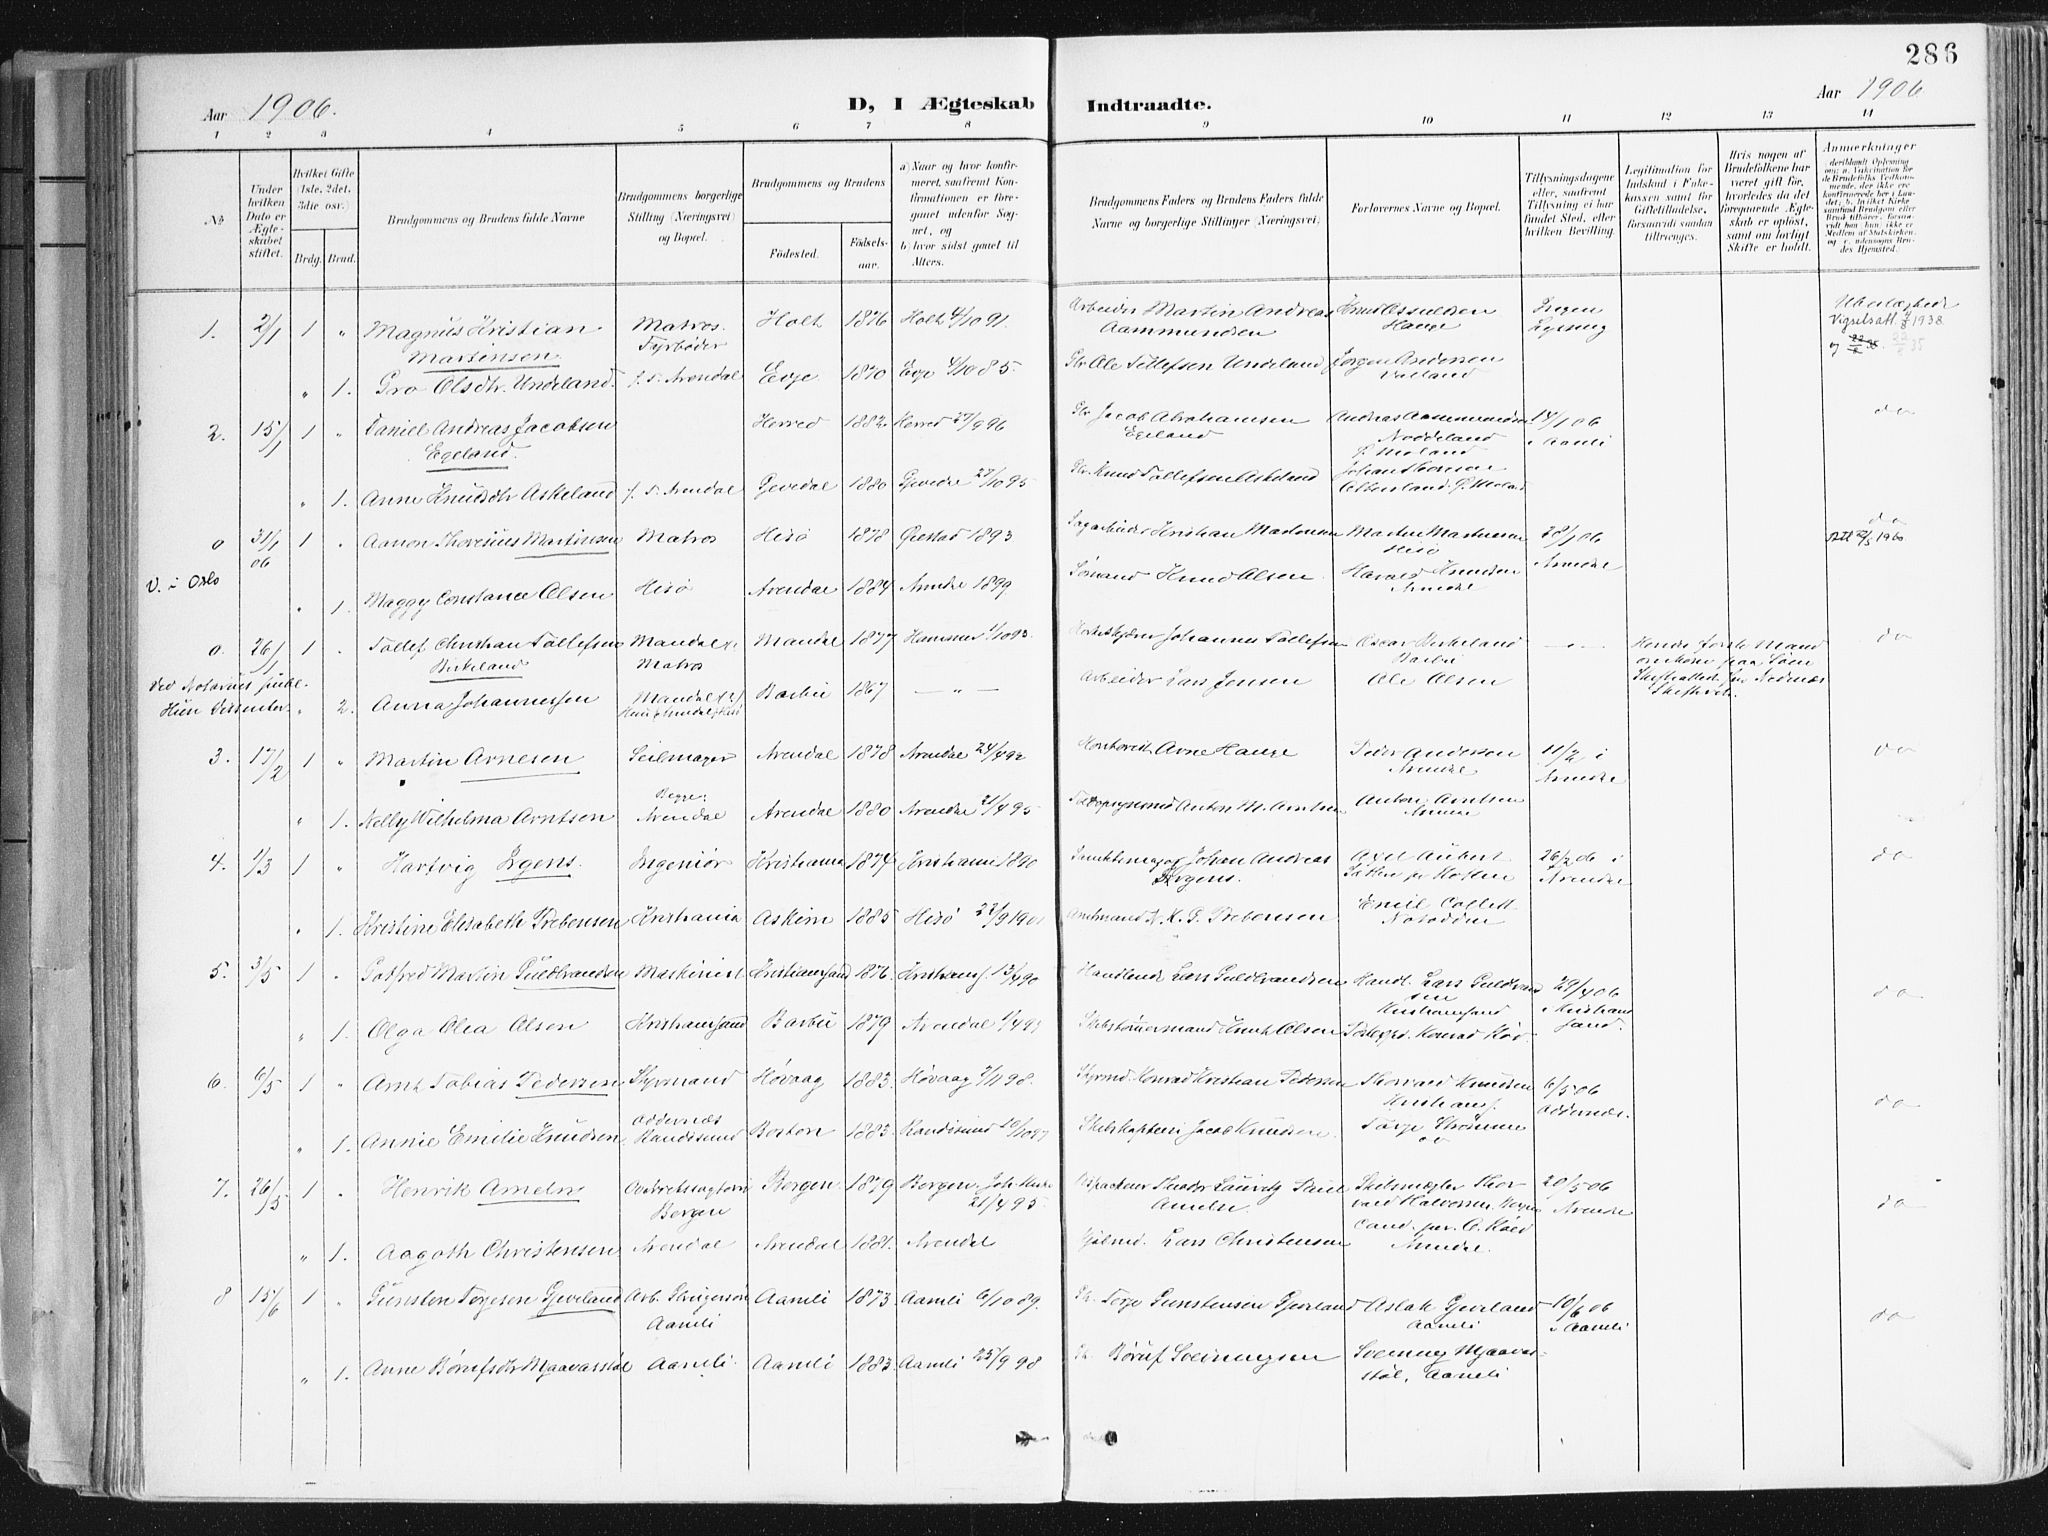 286
Aar 1906.
D, I Ægteskab Indtraadte.
Aar 1906
1 2 3 4 5 6 7 8 9 10 11 12 13 14
No.
Under hvilken Dato er Ægteskabet stiftet.
Hvilket Gifte (1ste, 2det, 3die osv.)
Brdg. Brud.
Brudgommens og Brudens fulde Navne
Brudgommens borgerlige Stilling (Næringsvei) og Bopæl.
Brudgommens og Brudens
Fødested.
Fødselsaar.
a) Naar og hvor konfirmeret, saafremt Konfirmationen er foregaaet udenfor Sognet, og
b) hvor sidst gaaet til Alters.
Brudgommens Faders og Brudens Faders fulde Navne og borgerlige Stillinger (Næringsvei)
Forlovernes Navne og Bopæl.
Tillysningsdagene eller, saafremt Tillysning ei har fundet Sted, efter hvilken Bevilling.
Legitimation for Indskud i Enkekassen samt for Giftetilladelse, forsaavidt saadan tiltrænges.
Hvis nogen af Brudefolkene har været gift før, hvorledes da det foregaaende Ægteskab er opløst, samt om lovligt Skifte er holdt.
Anmerkninger
1. 2/1 1 " Magnus Kristian Martinsen Matros Fyrbøder Holt 1876 Holt 4/10 91 Arbeider Martin Andreas Aammundsen Knud Assuldsen Hauge Ingen Lysning
Vigselsatt. 1938
" 1. Gro Olsdtr. Undeland f. T. Arendal Evje 1870 Evje 4/10 85. Gbr Ole Tellefsen Undeland Jørgen Andersen
2. 15/1 1 " Daniel Andreas Jacobsen Egeland Herred 1882 Herred 27/9 96 Gbr Jacob Abrahamsen Egeland Andreas Aammundsen Noddeland 14/1 06 i Aamli do
" 1. Anne Knudsdtr Askeland f. T. Arendal Gjevedal 1880 27/10 95 Gbr. Knud Tellefsen Askeland Johan Thomsen
0 31/1 06 1 " Aanon Thorenius Martinsen Matros Hisø 1878 Øiestad 1893 Sagarbeider Kristian Martinsen Morten Martinsen Hisø 28/1 06 Arendal do
Att 1960
V. i Oslo
" 1. Maggy Constance Olsen Hisø Arendal 1884 Arendal 1899 Sømand Knud Olsen. Harald Knudsen Arendal
0. 26/1 1 " Tollef Christian Tollefsen Birkeland Mandal Matros Mandal 1877 Johannes Tollefsen Oscar Birkeland Barbu — " — Hendes første Mand omkom paa Søen do
Ved Notarius publ.
Hun Dissenter " 2. Anna Johannessen Mandal Barbu 1867 — " — Arbeider Lars Jensen Ole Olsen
3. 17/2 1 " Martin Arnesen Seilmager Arendal 1878 Arendal 24/4 92 Arne Hauge Peder Andersen Arendal 11/2 i Arendal do
" 1. Nelly Wilhelma Arntsen Begge: Arendal Arendal 1880 Arendal 21/4 95 Toldopsynsmd Anton M. Arntsen Anton Arntsen Arendal
4. 1/3 1 " Hartvig Irgens. Ingeniør Kristiania 1874 Kristiania 1890 Johan Andreas Irgens. Axel Aubert 26/2 06 i Arendal do
" 1. Kristine Elisabeth Prebensen Kristiania Askim 1885 Hisø 22/9 1901 Amtmand N. K. G. Prebensen Emil Collett Notodden
5. 3/5 1 " Gotfred Martin Guldbrandsen Maskinist Kristiansand 1876. Kristians. 13/4 90 Handlende Lars Guldbrandsen Handl. Lars Guldbrandsen Kristiansand 29/4 06 i Kristiansand. do
" 1. Olga Olea Olsen Kristiansand Barbu 1879 Arendal Skibstømmermand Knut Olsen Konrad Kød.
6. 6/5 1 " Arnt Tobias Pedersen Styrmand Høvaag 1883. Høvaag 98. Styrmd. Konrad Kristian Pedersen Thorvald Knudsen Kristians. 6/5 06 Oddernæs. do
" 1. Annie Emilie Knudsen Oddernæs Randøsund Boston 1883. Randøsund 10/10 97 Skibskaptein Jacob Knudsen. Terje Strømme do
7. 26/5 1 " Henrik Ameln Bergen Bergen 1879 Bergen, Joh. Kirke 21/4 95. Theodor Lauritz Ameln. Skibsmægler Thorvald Halvorsen, Bergen 20/5 06 Arendal do
" 1. Aagoth Christensen Arendal Arendal 1881. Arendal Lars Christensen Cand. jur. O. Kød Arendal.
8 15/6 1 " Gunsten Torjesen Gjeveland Arb. Aamli Aamli 1873. Aamli 6/10 89. Gb. Torje Gunstensen Gjeveland Aslak Gjeveland Aamli 10/6 06 i Aamli do
" 1. Anne Børufsdtr Mjaavasstøl Aamli. Aamli 1883. Aamli 25/9 98 Gb. Børuf Sveinungsen Sveinung Mjaavasstøl, Aamli